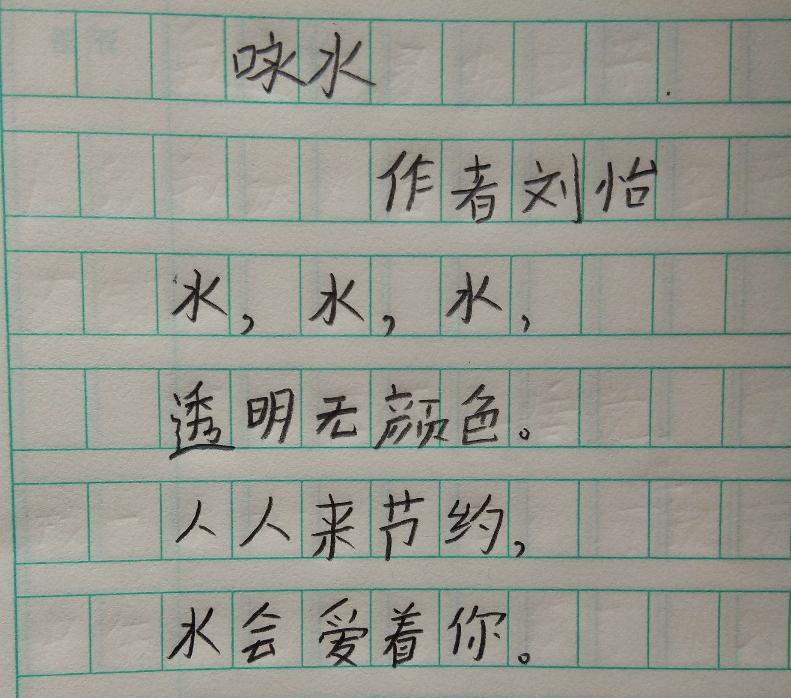 咏水
作者刘怡
水,水,水,
透明无颜色。
人人来节约,
水会爱着你。